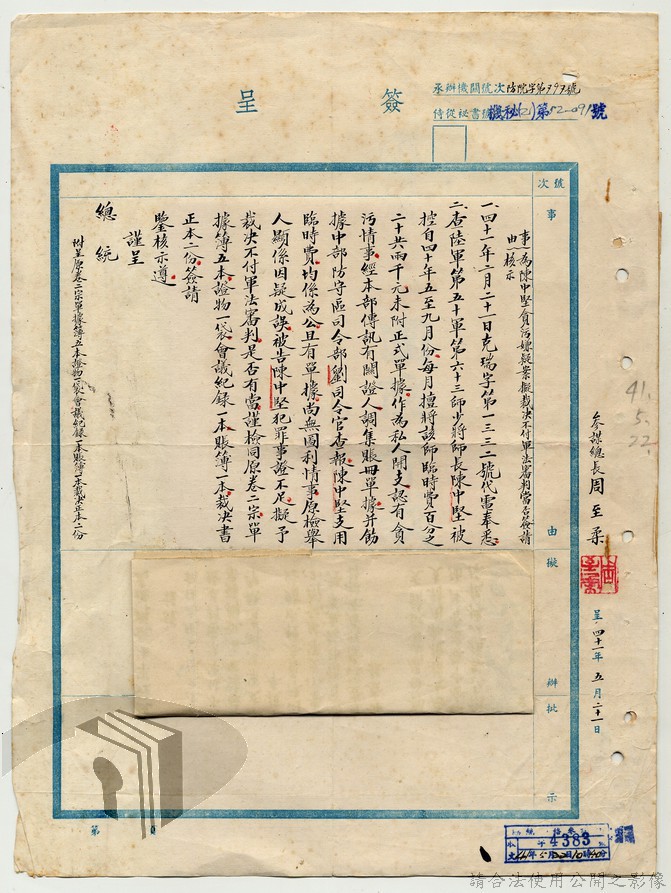 簽呈
承辦機關號次防院字第797號
侍從祕書機秘(乙)第52-091號
號次
事由
擬辦
批示
事由 為陳中堅貪污嫌疑案擬裁決不付軍法審判當否簽請核示
一、四十一年二月二十一日克瑞字第一三三二號代電奉悉。
二、查陸軍第五十軍第六十三師少將師長陳中堅被
控自四十年五至九月份、每月擅將該師臨時費百分之
二十共兩千元未附正式單據、作為私人開支認有貪
污情事、經本部傳訊有關證人調集賬冊單據并飭
據中部防守區司令部劉司令官查報陳中堅支用
臨時費、均係為公且有單據、尚無圖利情事原檢舉
人顯係因疑成誤、被告陳中堅犯罪事證不足、擬予
裁決不付軍法審判是否有當、謹檢同原卷二宗單
據簿五本證物一袋會議紀錄一本賬簿一本裁決書
正本二份、簽請
鑒核示遵。
謹呈
總統
附呈原卷二宗單據簿五本證物一袋會議紀錄一本賬簿一本裁決正本二份
參謀總長周至柔
呈 四十一年五月二十一日
41.
5.
22.
第 頁
4383
請合法使用公開之影像